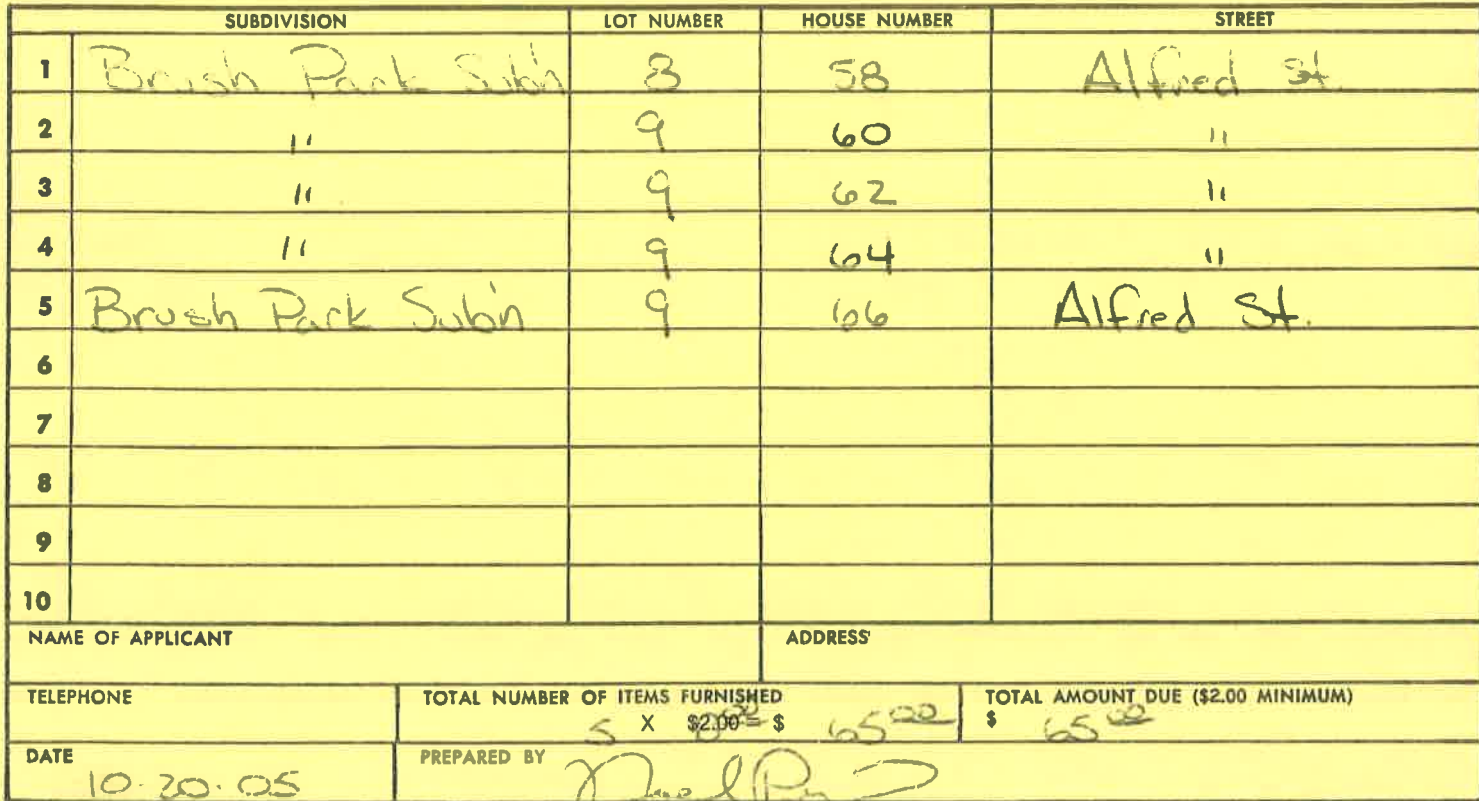 SUBDIVISION LOT NUMBER HOUSE NUMBER STREET
1 Brush Park Sub'n 8 58 Alfred St.
2 " 9 60 "
3 " 9 62 "
4 " 9 64 "
5 Brush Park Sub'n 9 66 Alfred St.
6
7
8
9
10
NAME OF APPLICANT ADDRESS
TELEPHONE TOTAL NUMBER OF ITEMS FURNISHED TOTAL AMOUNT DUE ($2.00 MINIMUM)
5 X $2.00 $ 65 00 $ 65 00
DATE PREPARED BY
10.20.05